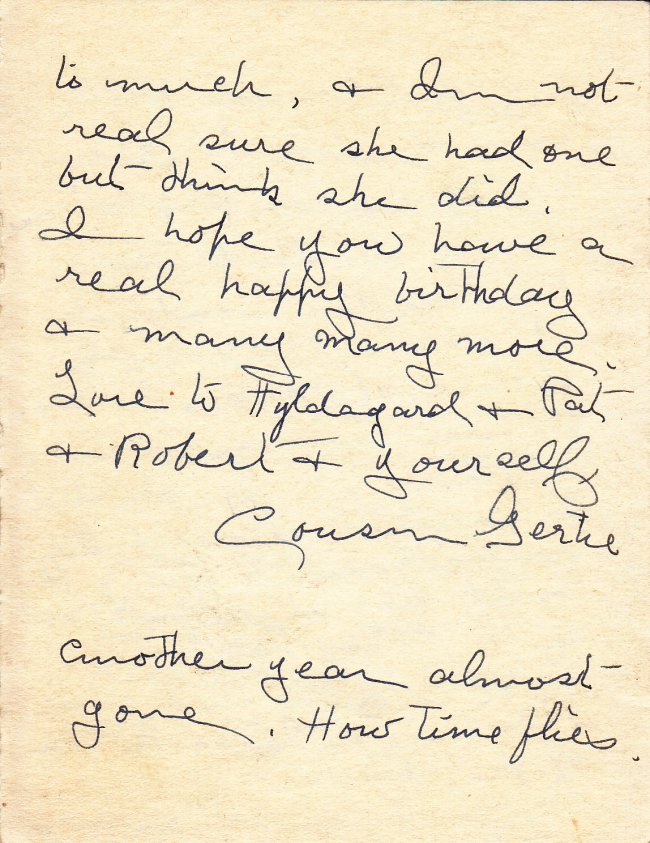 to much, & Im not
real sure she had one
but think she did.
I hope you have a
real happy birthday
& many many more.
Love to Hyldagard & Pat
& Robert & yourself
Cousin Gertie
another year almost
gone. How time flies.